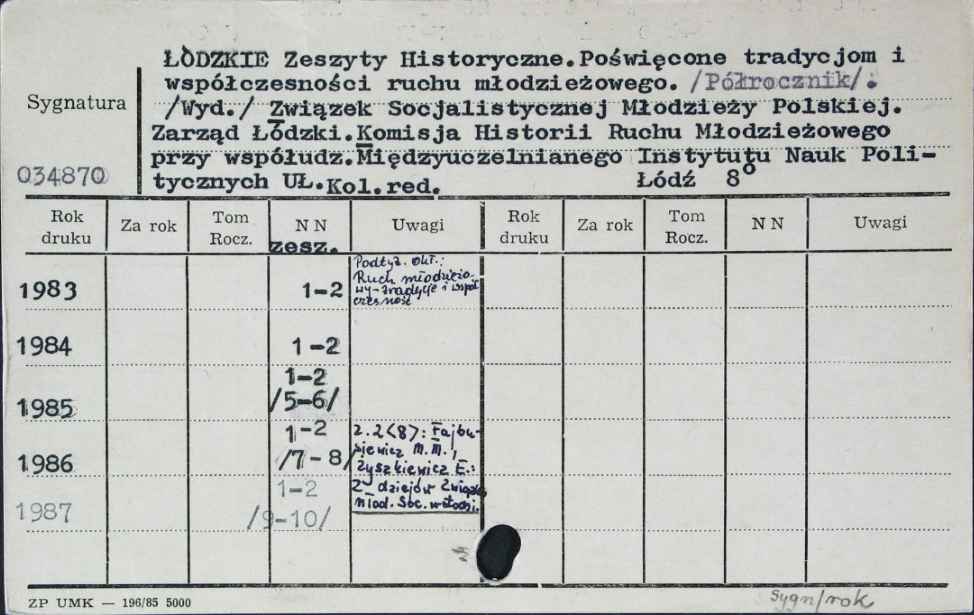 ŁÓDZKIE Zeszyty Historyczne.Poświęcone tradycjom i
współczesności ruchu młodzieżowego. /Półrocznik/.
Sygnatura
/Wyd./ Związek Socjalistycznej Młodzieży Polskiej.
Zarząd Łódzki.Komisja Historii Ruchu Młodzieżowego
przy współudz.Międzyuczelnianego Instytutu Nauk Poli-
034870
tycznych UŁ.Kol.red. Łódź 8º
Rok druku Za rok Tom Rocz. N N zesz. Uwagi Rok druku Za rok Tom Rocz. N N Uwagi
Podtyt. okł.:
Ruch młodzieżo-
wy-tradycje i współ
czesność
1983 1-2
1984 1-2
1-2
1985 /5-6/
1-2
1986 /7-8/
z.2<8>: Fajbu-
siewicz M.M.,
Zyszkiewicz E.:
Z dziejów Związku
Młod. Soc. w Łodzi.
1-2
1987 /9-10/
ZP UMK — 196/85 5000
sygn/rok